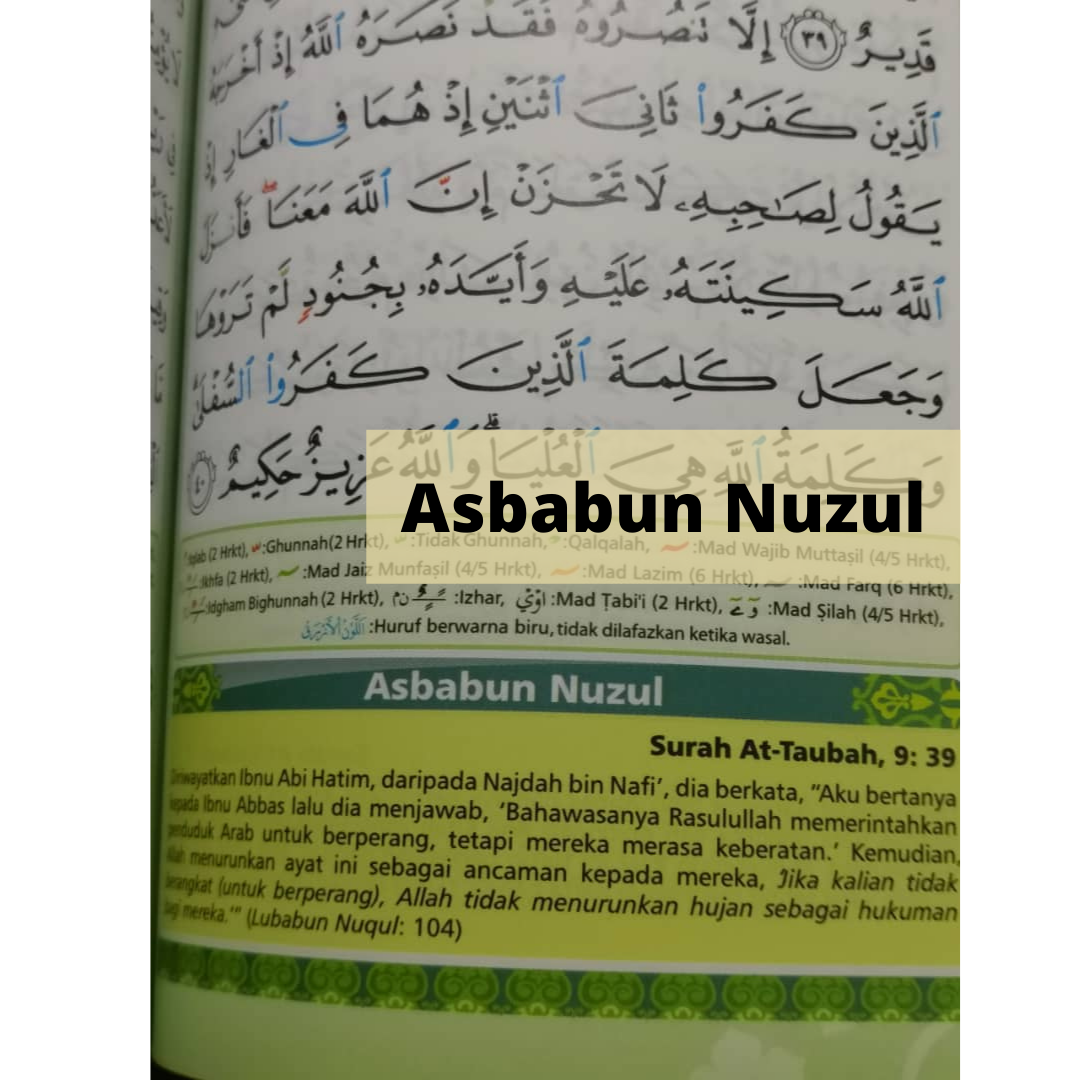 قَدِيرٌ ٣٩ إِلَّا تَنصُرُوهُ فَقَدْ نَصَرَهُ ٱللَّهُ إِذْ أَخْرَجَهُ
ٱلَّذِينَ كَفَرُوا۟ ثَانِىَ ٱثْنَيْنِ إِذْ هُمَا فِى ٱلْغَارِ إِذْ
يَقُولُ لِصَـٰحِبِهِۦ لَا تَحْزَنْ إِنَّ ٱللَّهَ مَعَنَا ۖ فَأَنزَلَ
ٱللَّهُ سَكِينَتَهُۥ عَلَيْهِ وَأَيَّدَهُۥ بِجُنُودٍ لَّمْ تَرَوْهَا
وَجَعَلَ كَلِمَةَ ٱلَّذِينَ كَفَرُوا۟ ٱلسُّفْلَىٰ ۗ
وَكَلِمَةُ ٱللَّهِ هِىَ ٱلْعُلْيَا ۗ وَٱللَّهُ عَزِيزٌ حَكِيمٌ ٤٠
Asbabun Nuzul
(2 Hrkt), :Ghunnah(2 Hrkt), :Tidak Ghunnah, :Qalqalah, :Mad Wajib Muttaṣil (4/5 Hrkt),
:Ikhfa (2 Hrkt), :Mad Jaiz Munfaṣil (4/5 Hrkt), :Mad Lazim (6 Hrkt), :Mad Farq (6 Hrkt),
:Idgham Bighunnah (2 Hrkt), :Izhar, :Mad Ṭabi'i (2 Hrkt), :Mad Ṣilah (4/5 Hrkt),
:Huruf berwarna biru, tidak dilafazkan ketika wasal.
Asbabun Nuzul
Surah At-Taubah, 9: 39
Diriwayatkan Ibnu Abi Hatim, daripada Najdah bin Nafi’, dia berkata, “Aku bertanya
kepada Ibnu Abbas lalu dia menjawab, ‘Bahawasanya Rasulullah memerintahkan
penduduk Arab untuk berperang, tetapi mereka merasa keberatan.’ Kemudian,
Allah menurunkan ayat ini sebagai ancaman kepada mereka, Jika kalian tidak
berangkat (untuk berperang), Allah tidak menurunkan hujan sebagai hukuman
bagi mereka.’” (Lubabun Nuqul: 104)